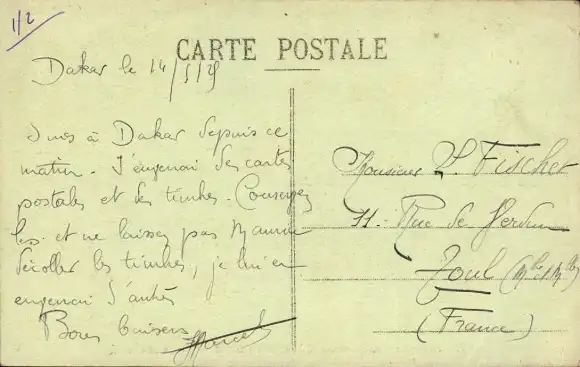 1/2
CARTE POSTALE
Dakar le 14/5/29
Suis à Dakar depuis ce
matin. J'envenai des cartes
postales et des timbres. Conservez
les. et ne laissez pas Maurice
décoller les timbres, je lui en
envenai d'autres
Bons baisers
Marcel
Monsieur P. Fischer
11. Rue de Verdun
Toul (Mthe et Mlle)
(France)